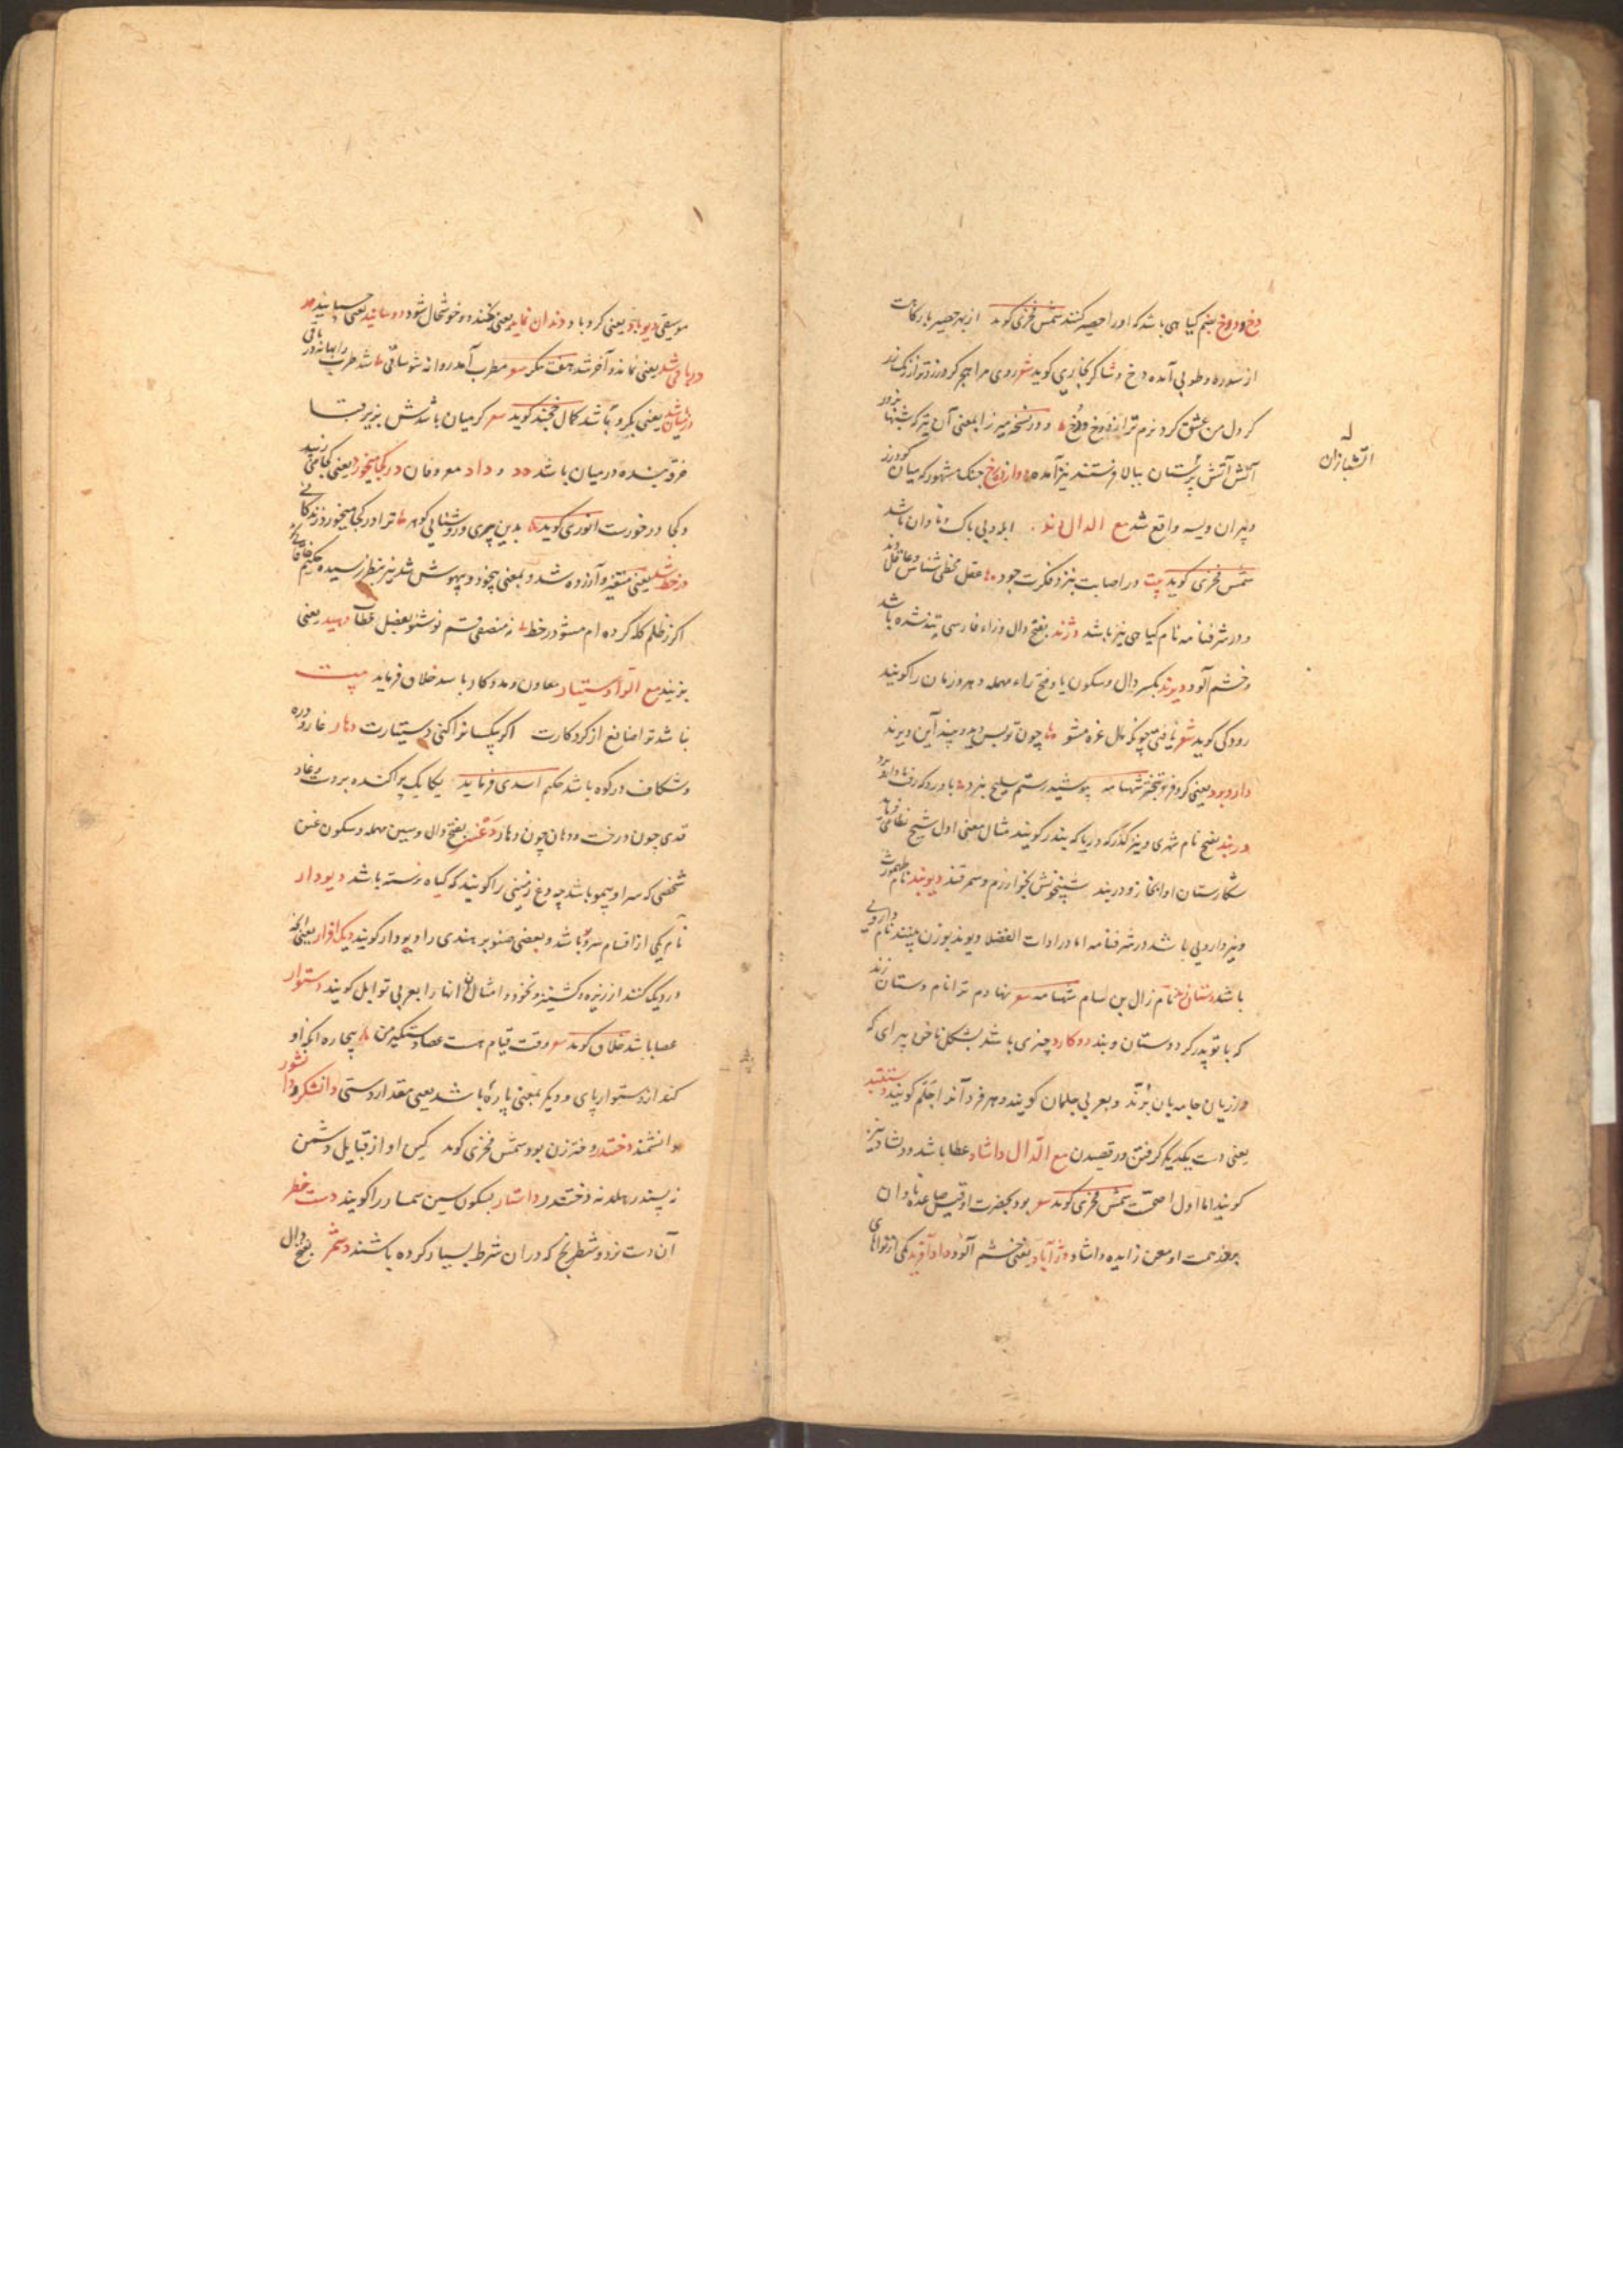 دخ و دوخ بضم کیا هی باشد که اورا حصیر کنند شمس فخری کوید از بهر حصیر بارکاهت
از سدره و طوبی آمده دخ و شاکر بخاری کوید شعر روی مرا هجر کرد زردتر از زر
کر دل من عشق کرد نرم تر از دخ و دوخ و در نسخه میرزا بمعنی آن تیر که شبها
آتش پرستان ببالا فرستند نیز آمده دوازده رخ جنک مشهور که میان کودرز
و پیران ویسه واقع شد مع الدال دند ابله و بی باک و نادان باشد
شمس فخری کوید بیت در اصابت بنزد فکرت خود عقل مخطی شناس و عاقل دند
و در شرفنامه نام کیاهی نیز باشد دژند بفتح دال و زاء فارسی تند شده باشد
و خشم آلود دیرند بکسر دال و سکون یا و فتح راء مهمله دهر و زمان را کویند
رودکی کوید شعر یافتی چونکه مال غره مشو چون تو بس دید و بیند این دیرند
دار و برد یعنی کر و فر و تبختر شهنامه بپوشید رستم سلیح نبرد
دربند بفتح نام شهری و نیز کذرکه دریا که بندر کویند مثال معنی اول شیخ نظامی فرماید
شکارستان او ابخاز و دربند شبیخونش بخوارزم و سمرقند دیوبند نام طهمورث
و نیز دارویی باشد در شرفنامه اما در ادات الفضلا دیوند بوزن بیند نام دارویی
باشد دستان زند نام زال بن سام شهنامه شعر نهادم ترا نام دستان زند
که با تو پدر کرد دستان و بند دو کارد چیزی باشد بشکل ناخن پیرای که
درزیان جامه بان برند و بعربی جلمان کویند و هر فرد آنرا جلم کویند دستبند
یعنی دست یکدیکر کرفتن و رقصیدن مع الدال داشاد عطا باشد و دشاد نیز
کویند اما اول اصحست شمس فخری کوید شعر بود بحضرت او قیصر
بروز همت او معن زایده داشاد دژ آباد یعنی خشم آلود داد آفرید یکی از نواهای
آتشبازان
موسیقی دیوباد یعنی کردباد دندان نماید یعنی بخندد و خوشحال شود دوسانید یعنی چسپانید
در باقی شد یعنی نماند و آخر شد هفت پیکر شعر مطرب آمد روانه شو ساقی شد طرب را بهانه در باقی
در میان باشد یعنی بکرو باشد کمال خجند کوید شعر کر میان باشدش بزیر قبا
خرقه بنده در میان باشد دد و داد معروفان در کجا میخورد یعنی کجا می زیبد
و کجا در خورست انوری کوید بدین چیزی و روشنایی کوهر ترا در کجا میخورد زندکانی
در خط شد یعنی متغیر و آزرده شد و بمعنی بیخود و بیهوش شد نیز بنظر رسیده حکیم خاقانی
اکر ز ظلم کله کرده ام مشو در خط نه منصفی قسم نوشتم بفضل عطا دمید یعنی
مع الرا دستیار معاون و مددکار باشد خلاق فرماید بیت
نباشد ترا ضایع از کرد کارت اکر بیکسانرا کنی دستیارت دهار غار و دره
و شکاف در کوه باشد حکیم اسدی فرماید یکایک پراکنده بر دشت و غار
قدی چون درخت و دهان چون دهار دغسر بفتح دال و سین مهمله و سکون غین
شخصی که سر او بیمو باشد چه دغ زمینی را کویند که کیاه نرسته باشد دیودار
نام یکی از اقسام سرو باشد و بعضی صنوبر هندی را دیودار کویند دیک افزار یعنی آنچه
در دیک کنند از زیره و کشنیز و نخود و امثال آن آنها را بعربی توابل کویند دستوار
عصا باشد خلاق کوید شعر وقت قیام هست عصا دستکیر من بیچاره آنکه او
کند از دستوار پای و دیکر بمعنی پاره باشد یعنی مقدار دستی دانشکر و دانشور
دانشمند دختندر دختر زن بود شمس فخری کوید کین او از قبایل دشمن
نه پسندر هلد نه دختندر داشار بسکون سین سمسار را کویند دست خطر
آن دست نرد و شطرنج که در آن شرط بسیار کرده باشند دشمر بفتح دال